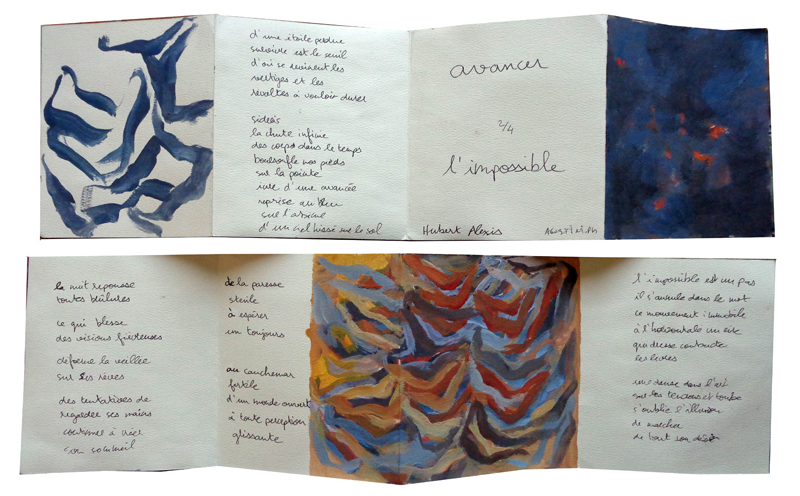 d'une étoile perdue
survivre est le seuil
d'où se revirent les
vertiges et les
révoltes à vouloir durer
sidérés
la chute infinie
des corps dans le temps
boursoufle nos pieds
sur la pointe
ivre d'une avancée
reprise au bleu
sur l'abîme
d'un ciel hissé sur le sol
avancer
2/4
l'impossible
Hubert Alexis
la nuit repousse
toutes brûlures
ce qui blesse
des visions fiévreuses
déforme la veillée
sur les rêves
des tentatives de
regarder ses mains
continuer à
son sommeil
de la paresse
stérile
à espérer
un toujours
au cauchemar
fertile
d'un monde ouvert
à toute perception
glissante
l'impossible est un pas
il s'annule dans le mot
ce mouvement immobile
à l'horizontale
qui dresse
les lèvres
une danse dans l'art
sur les tendons et tombe
s'oublie l'illusion
de marcher
de bout son